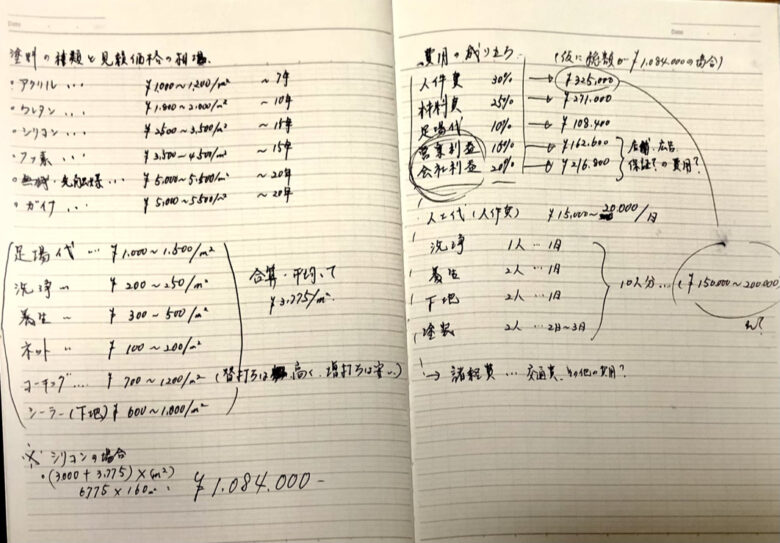 Date
塗料の種類と見積価格の相場.
・アクリル ... ¥1,000~1,200/m² ~7年
・ウレタン ... ¥1,800~2,000/m² ~10年
・シリコン ... ¥2500~3,500/m²
・フッ素 ... ¥3,500~4,500/m² ~15年
・無機・光触媒... ¥5,000~5,500/m² ~20年
・ガイナ ... ¥5,000~5500/m² ~20年
足場代 ... ¥1,000~1,500/m²
洗浄 〃 ¥200~250/m²
養生 〃 ¥300~500/m²
ネット 〃 ¥100~200/m²
コーキング .... ¥700~1200/m² (替打ちは高く、増打ちは安い)
シーラー(下地) ¥600~1,000/m²
合算・平均って
¥3,775/m²
※ シリコンの場合
・(3000+3,775)×(m²)
6775×160m² : ¥1,084,000-
Date
費用の成り立ち (仮に総額が¥1,084,000の場合)
人件費 30% → ¥325,000
材料費 25% → ¥271,000
足場代 10% → ¥108,400
営業利益 15% → ¥162,600
会社利益 20% → ¥216,800
店舗、広告
保証?の費用?
人工代(人件費) ¥15,000~20,000/日
洗浄 1人...1日
養生 2人...1日
下地 2人...1日
塗装 2人...2日~3日
10人分...(¥150,000~200,000
→ 諸経費 ... 交通費、その他の費用?